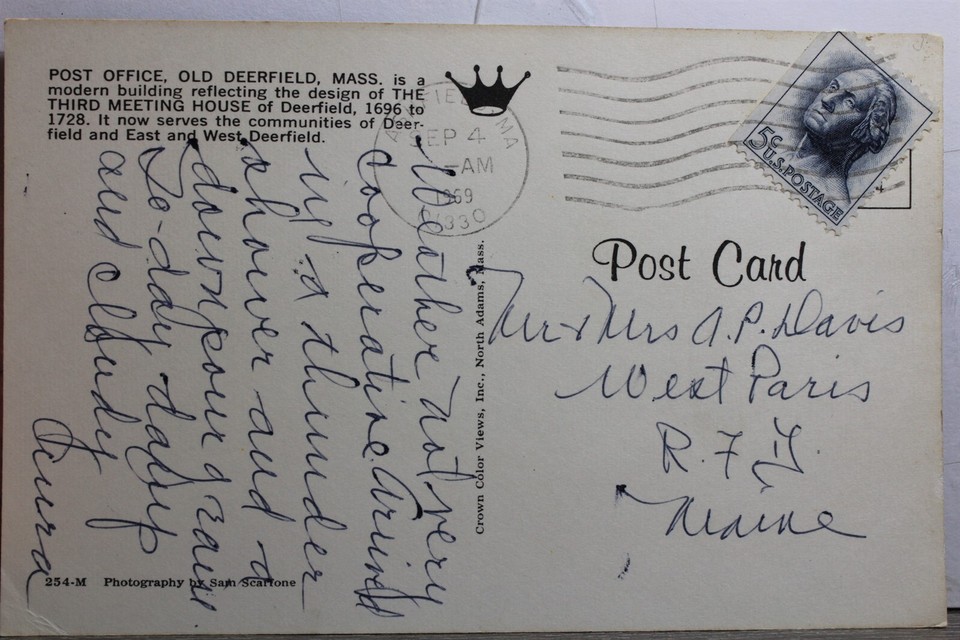 POST OFFICE, OLD DEERFIELD, MASS. is a
modern building reflecting the design of THE
THIRD MEETING HOUSE of Deerfield, 1696 to
1728. It now serves the communities of Deer-
field and East and West Deerfield.
SEP 4
-AM
1969
MA
01330
5c U.S. POSTAGE
Post Card
Weather not very
cooperative. Arrived
in a thunder
shower and a
downpour of rain
To-day damp
and cloudy
Crown Color Views, Inc., North Adams, Mass.
Mr & Mrs A. P. Davis
West Paris
R. F.
Maine
254-M Photography by Sam Scarfone